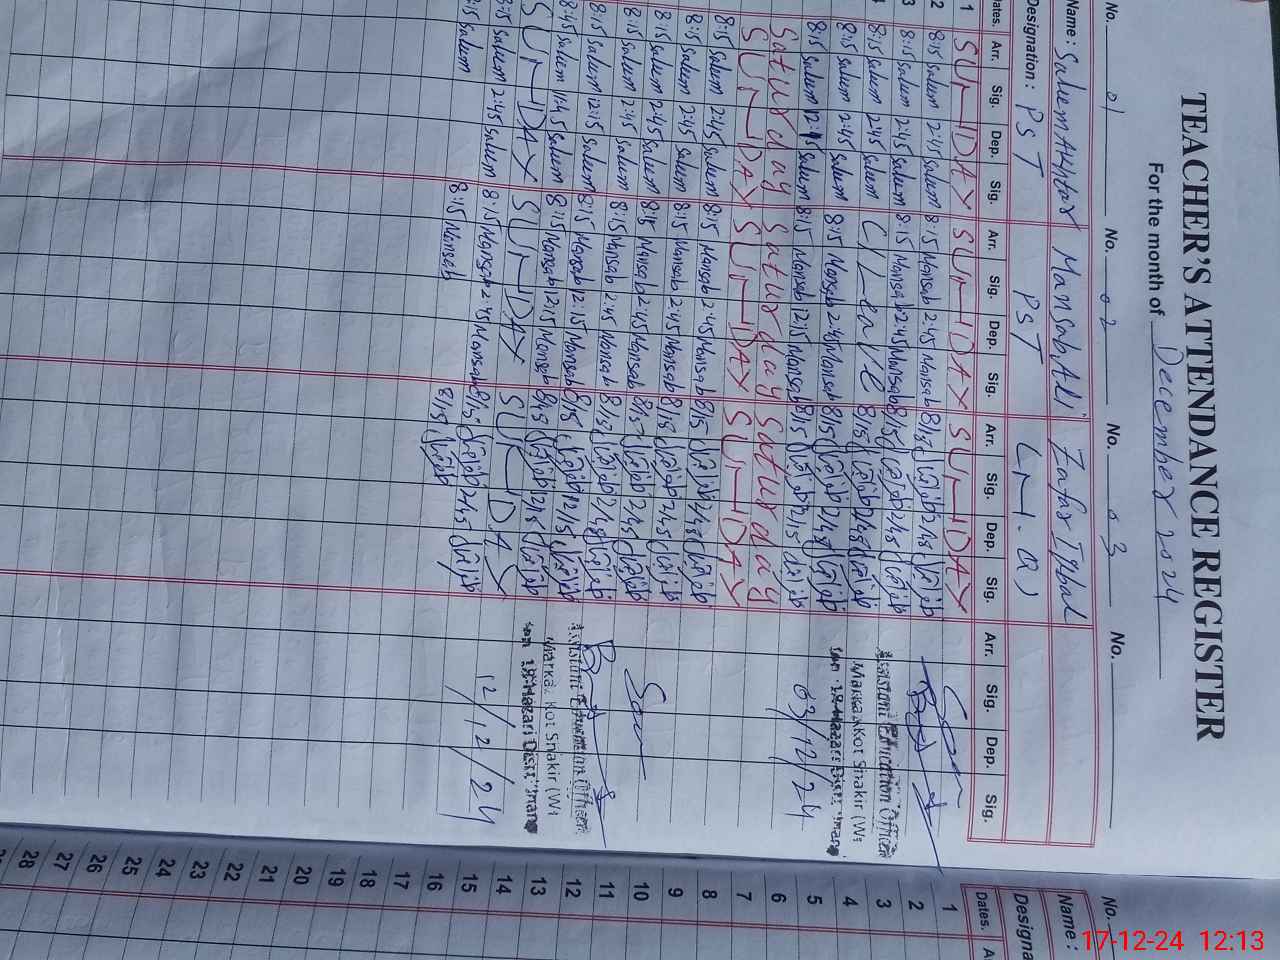 TEACHER'S ATTENDANCE REGISTER
For the month of December 2024
No. 01 No. 02 No. 03 No.
Name: Salem Akhtar Mansab Ali Zafar Iqbal
Designation: PST PST
Dates. Arr. Sig. Dep. Sig. Arr. Sig. Dep. Sig. Arr. Sig. Dep. Sig. Arr. Sig. Dep. Sig.
1 SUNDAY SUNDAY SUNDAY
2 8:15 Salem 2:45 Salem 8:15 Mansab 2:45 Mansab 8/15 2/45
3 8:15 Salem 2:45 Salem 8:15 Mansab 2:45 Mansab 8/15 2/45
8:15 Salem 2:45 Salem C/Leave 8/15 2/45
8:15 Salem 2:45 Salem 8:15 Mansab 2:45 Mansab 8/15 2/45
8:15 Salem 12:15 Salem 8:15 Mansab 12:15 Mansab 8/15 12/15
Saturday Saturday Saturday
SUNDAY SUNDAY SUNDAY
8:15 Salem 2:45 Salem 8:15 Mansab 2:45 Mansab 8/15 2/45
8:15 Salem 2:45 Salem 8:15 Mansab 2:45 Mansab 8/15 2/45
8:15 Salem 2:45 Salem 8:15 Mansab 2:45 Mansab 8/15 2/45
8:15 Salem 2:45 Salem 8:15 Mansab 2:45 Mansab 8/15 2/45
8:15 Salem 12:15 Salem 8:15 Mansab 12:15 Mansab 8/15 12/15
8:45 Salem 1:45 Salem 8:15 Mansab 12:15 Mansab 8/45 12/15
SUNDAY SUNDAY SUNDAY
8:15 Salem 2:45 Salem 8:15 Mansab 2:45 Mansab 8/15 2/45
8:15 Salem 8:15 Mansab 8/15
Assistant Education Officer
Markaz Kot Shakir (W)
03/12/24
Assistant Education Officer
Markaz Kot Shakir (W)
12/12/24
No.
Name:
Designa
Dates. A
1
2
3
4
5
6
7
8
9
10
11
12
13
14
15
16
17
18
19
20
21
22
23
24
25
26
27
28
17-12-24 12:13